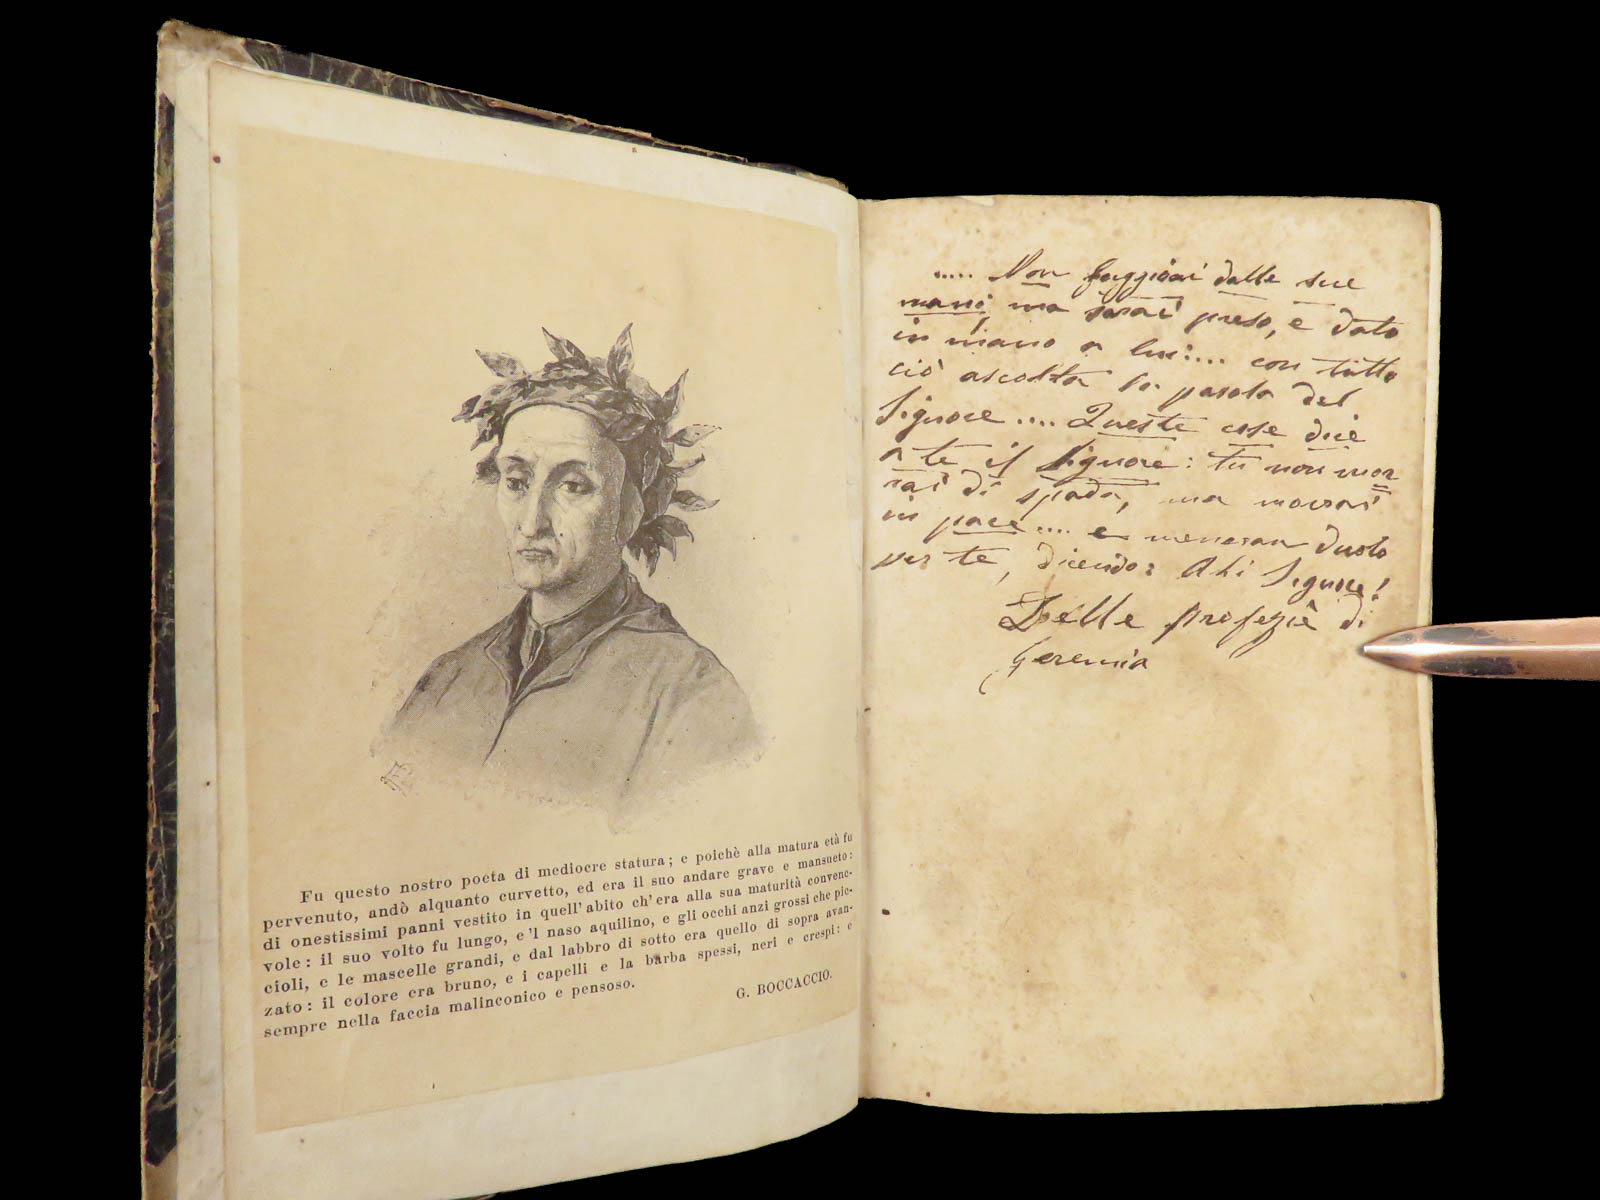 Fu questo nostro poeta di mediocre statura; e poichè alla matura età fu
pervenuto, andò alquanto curvetto, ed era il suo andare grave e mansueto:
di onestissimi panni vestito in quell'abito ch'era alla sua maturità convene-
vole: il suo volto fu lungo, e 'l naso aquilino, e gli occhi anzi grossi che pic-
cioli, e le mascelle grandi, e dal labbro di sotto era quello di sopra avan-
zato: il colore era bruno, e i capelli e la barba spessi, neri e crespi: e
sempre nella faccia malinconico e pensoso.
G. BOCCACCIO.
..... Non fuggirai dalle sue
mani ma sarai preso, e dato
in mano a lui:... con tutto
ciò ascolta la parola del
Signore .... Queste cose dice
a te il Signore: tu non mor
rai di spada, ma morrai
in pace .... e meneran duolo
per te, dicendo: Ahi Signore!
Delle profezie di
Geremia